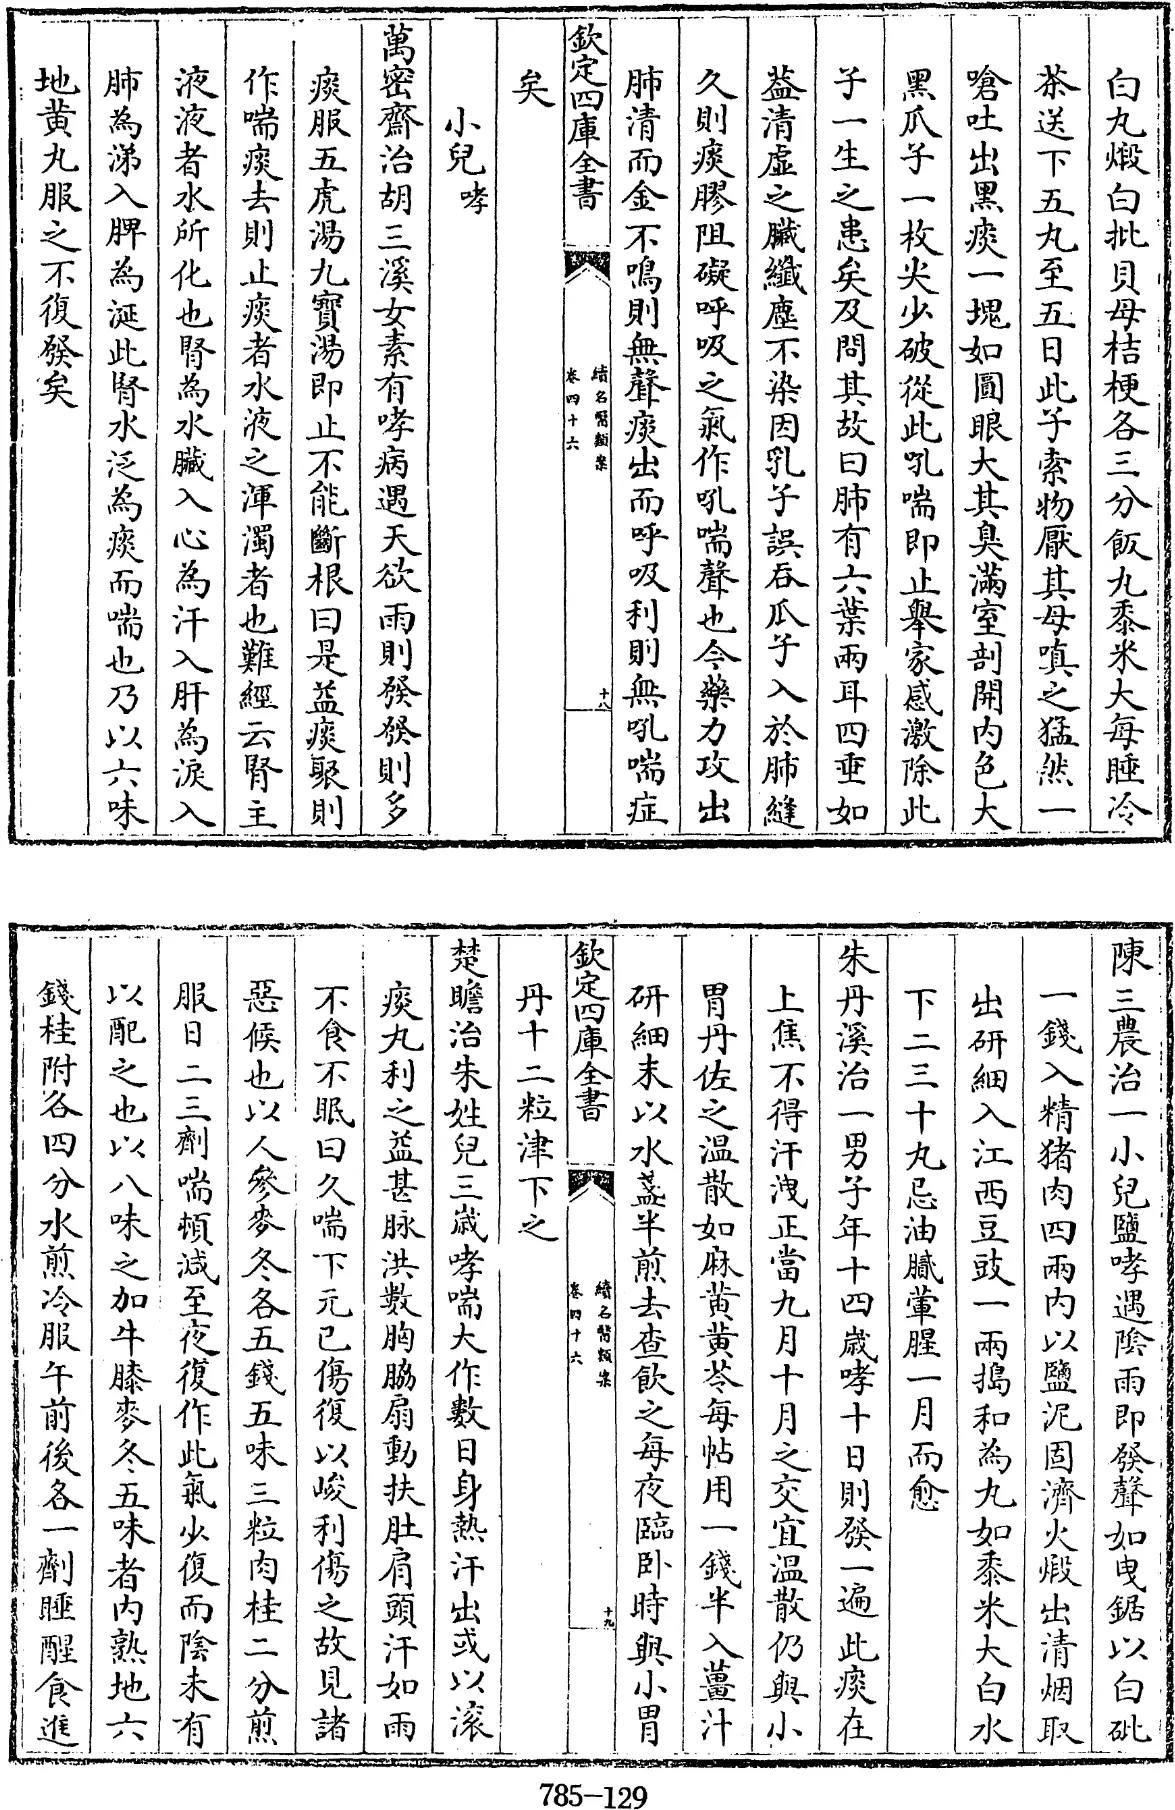 白丸煅白批貝母桔梗各三分飯丸黍米大每睡冷
茶送下五丸至五日此子索物厭其母嗔之猛然一
嗆吐出黑痰一塊如圓眼大其臭滿室剖開内色大
黑瓜子一枚尖少破從此吼喘即止舉家感激除此
子一生之患矣及問其故曰肺有六葉兩耳四垂如
葢清虛之臟纖塵不染因乳子誤吞瓜子入於肺縫
久則痰膠阻礙呼吸之氣作吼喘聲也今藥力攻出
肺清而金不鳴則無聲痰出而呼吸利則無吼喘症
欽定四庫全書
續名醫類案
卷四十六
十八
矣
小兒哮
萬密齋治胡三溪女素有哮病遇天欲雨則發發則多
痰服五虎湯九寶湯即止不能斷根曰是葢痰聚則
作喘痰去則止痰者水液之渾濁者也難經云腎主
液液者水所化也腎為水臟入心為汗入肝為淚入
肺為涕入脾為涎此腎水泛為痰而喘也乃以六味
地黄丸服之不復發矣
陳三農治一小兒鹽哮遇陰雨即發聲如曳鋸以白砒
一錢入精猪肉四兩内以鹽泥固濟火煅出清烟取
出研細入江西豆豉一兩搗和為丸如黍米大白水
下二三十丸忌油膩葷腥一月而愈
朱丹溪治一男子年十四歲哮十日則發一遍此痰在
上焦不得汗洩正當九月十月之交宜温散仍與小
胃丹佐之温散如麻黄黄芩每帖用一錢半入薑汁
研細末以水盞半煎去查飲之每夜臨卧時與小胃
欽定四庫全書
續名醫類案
卷四十六
十九
丹十二粒津下之
楚瞻治朱姓兒三歲哮喘大作數日身熱汗出或以滚
痰丸利之益甚脉洪數胸脇扇動扶肚肩頭汗如雨
不食不眠曰久喘下元已傷復以峻利傷之故見諸
惡候也以人參麥冬各五錢五味三粒肉桂二分煎
服日二三劑喘頓減至夜復作此氣少復而陰未有
以配之也以八味之加牛膝麥冬五味者内熟地六
錢桂附各四分水煎冷服午前後各一劑睡醒食進
785-129